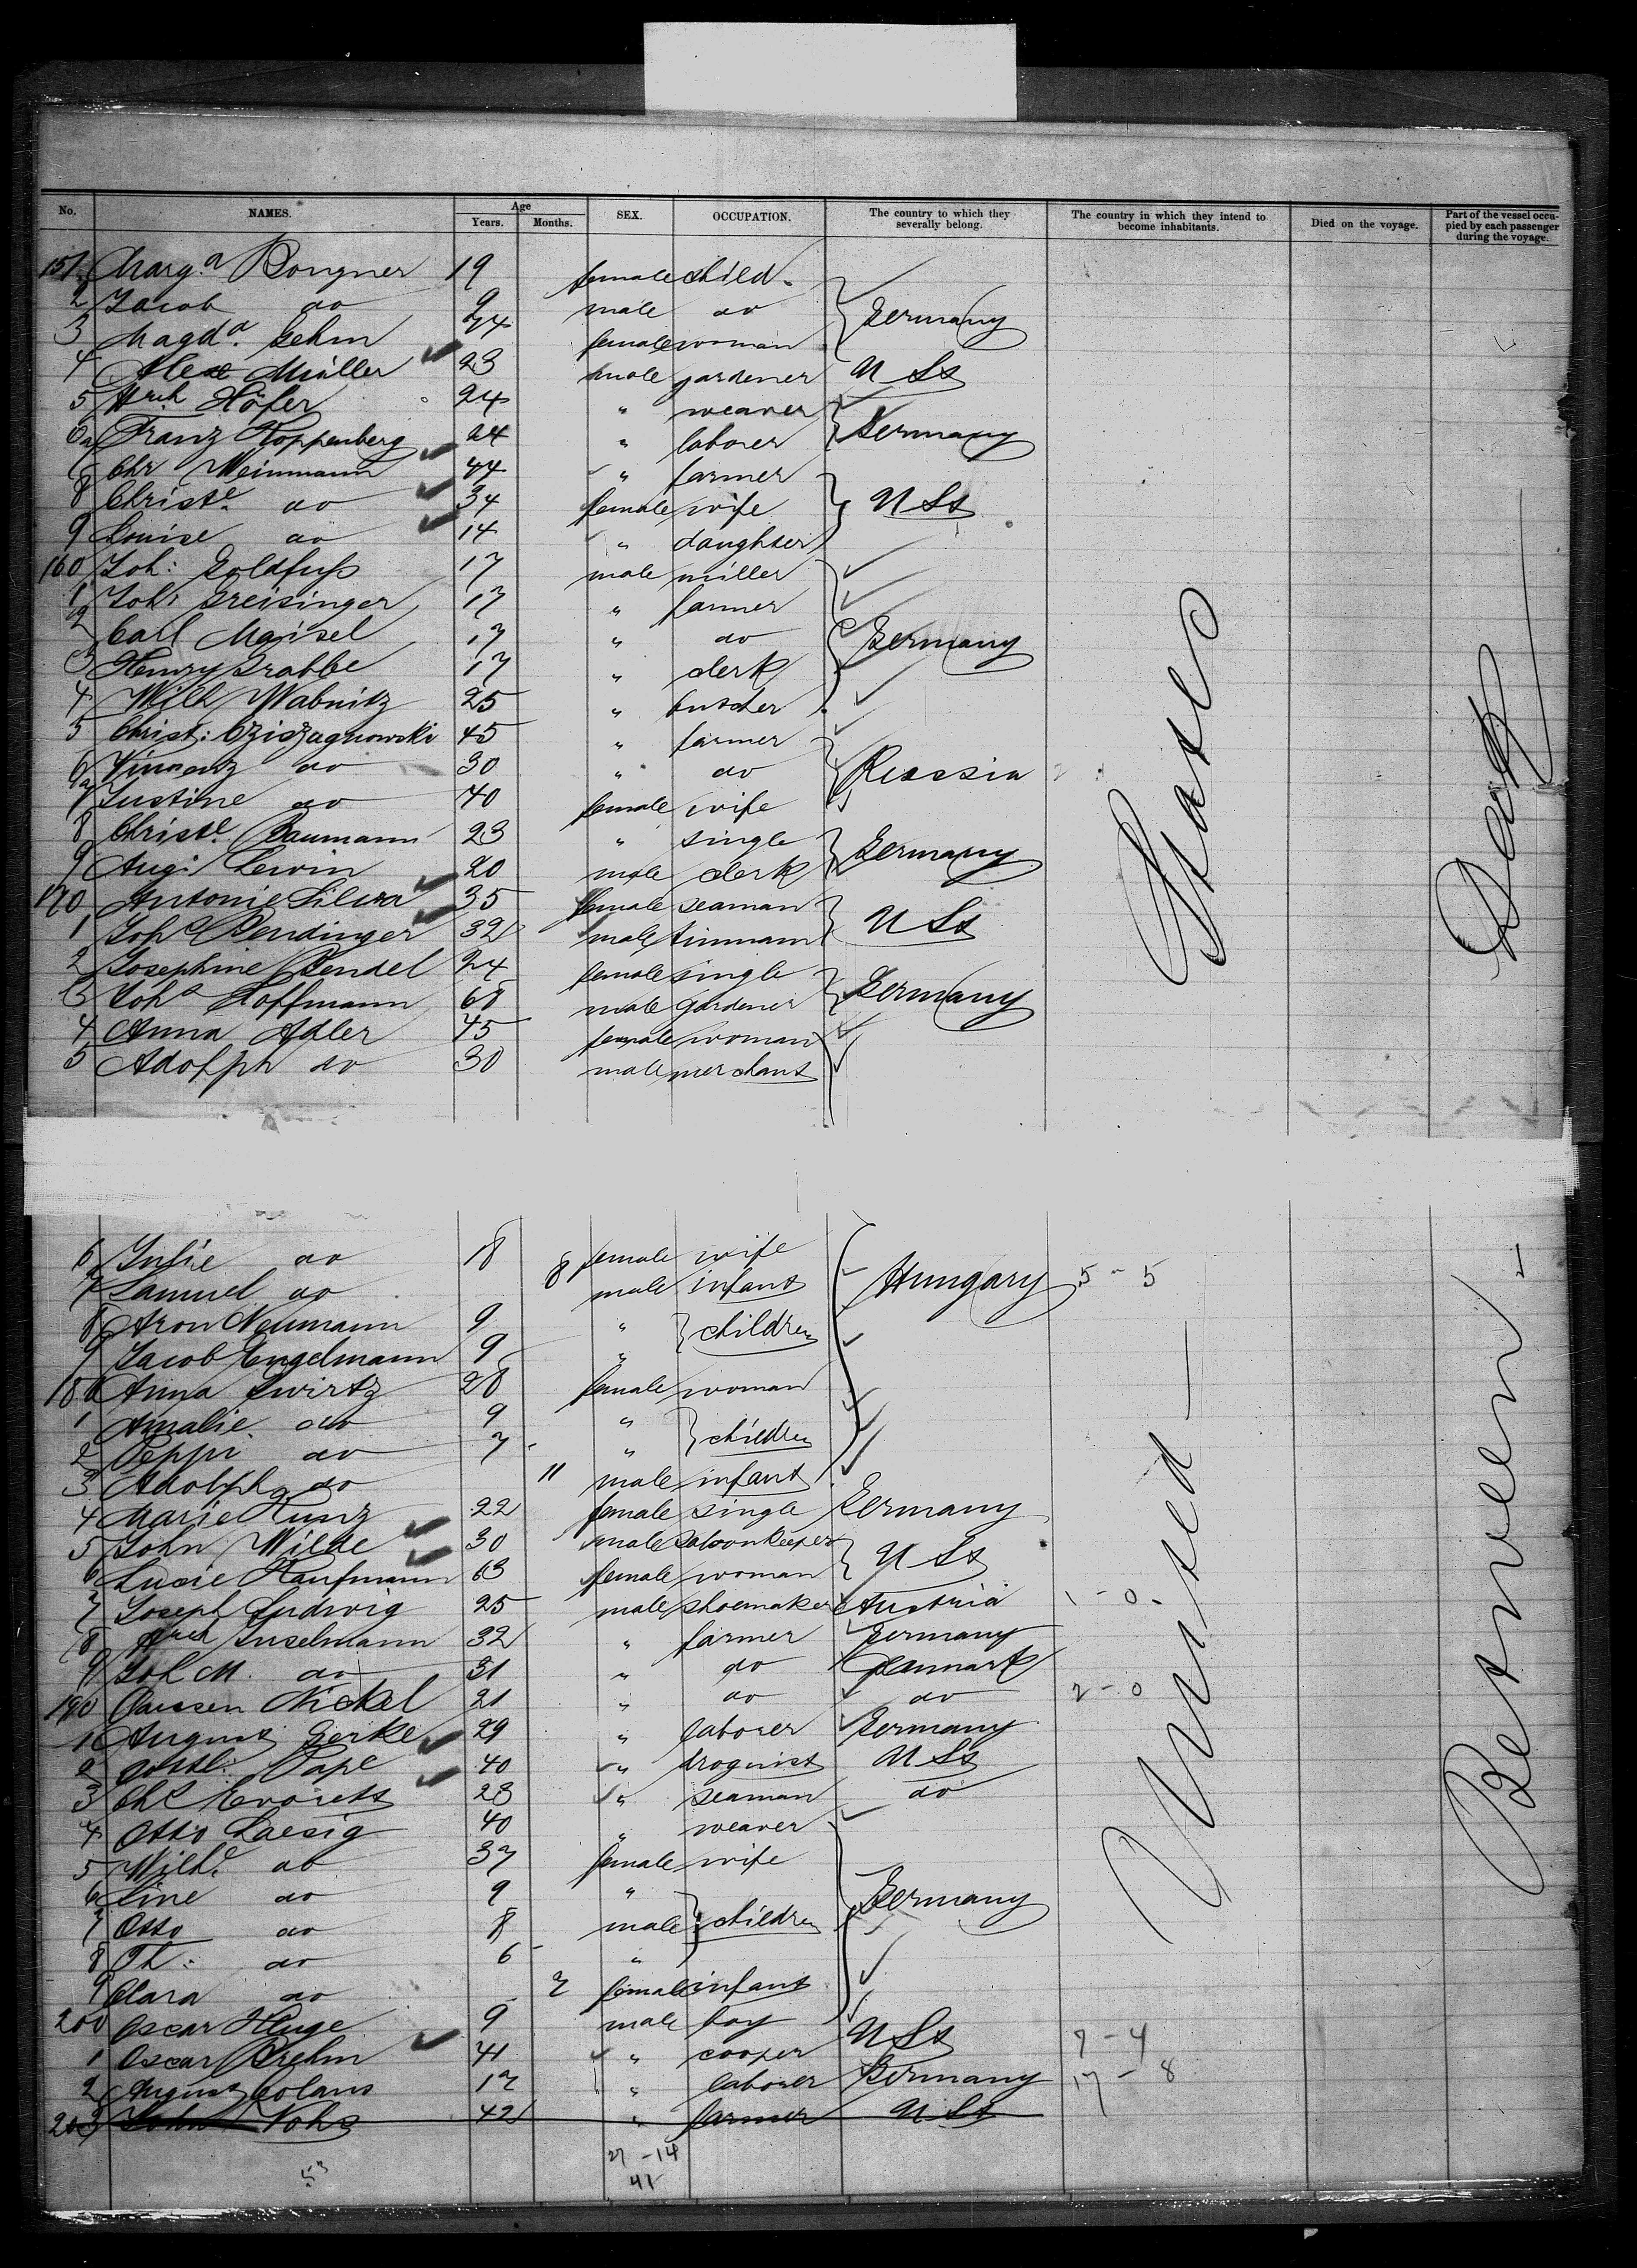 No. NAMES. Age Years. Months. SEX. OCCUPATION. The country to which they severally belong. The country in which they intend to become inhabitants. Died on the voyage. Part of the vessel occupied by each passenger during the voyage.
151 Marg.a Bongner 19 female child
2 Jacob do 9 male do } Germany
3 Magd.a Gehm female woman
4 Alex Müller 23 male gardener U Ss
5 Hrch Höfer 24 " weaver
6 Franz Koppenberg 24 " laborer } Germany
7 Chr Weinmann 44 " farmer
8 Christe. do 34 female wife } U Ss
9 Louise do 14 " daughter
160 Joh: Goldfuß 17 male miller
1 Joh: Greisinger 17 " farmer
2 Carl Maisel 17 " do } Germany
3 Henry Grabbe 17 " clerk
4 Wilh Wabnitz 25 " butcher
5 Christ: 45 " farmer
6 Vincenz do 30 " do } Russia
7 Justine do 40 female wife
8 Christe. Baumann 23 " single
9 Aug: Lewin 20 male clerk } Germany
170 Antonie Silva 35 female seaman
1 Johs Bendinger 32 male tinmann } U Ss
2 Josephine Bendel 24 female single
3 Joha Hoffmann 68 male gardener } Germany
4 Anna Adler 45 female woman
5 Adolph do 30 male merchant
6 Julie do 18 female wife
7 Samuel do 8 male infant Hungary 5-5
8 Aron Neumann 9 " } children
9 Jacob Engelmann 9 "
180 Anna Swirtz 28 female woman
1 Amalie do 9 " } children
2 Peppi do 7 "
3 Adolph do 11 male infant
4 Marie Kunz 22 female single Germany
5 John Wilde 30 male saloonkeeper
6 Lucie Kaufmann 63 female woman } U Ss
7 Joseph Ludwig 25 male shoemaker Austria 1-0
8 Hrch Inselmann 32 " farmer Germany
9 Joh M. do 31 " do Danmark
190 Claussen Nickel 21 " do do 2-0
1 August Gerke 29 " laborer Germany
2 Gottl: Pape 40 " droguist U Ss
3 Chs Evoretts 23 " seaman do
4 Otto Laesig 40 " weaver
5 Wilhe. do 37 female wife
6 Line do 9 " Germany
7 Otto do 8 male } children
8 Th: do 6 "
9 Clara do female infant
200 Oscar Kluge 9 male boy
1 Oscar Brehm 41 " cooper U Ss 7-4
2 August Colans 17 " laborer Germany 17-8
203 John Nohs 42 " farmer U Ss
27-14
41
53
United States
Between Deck